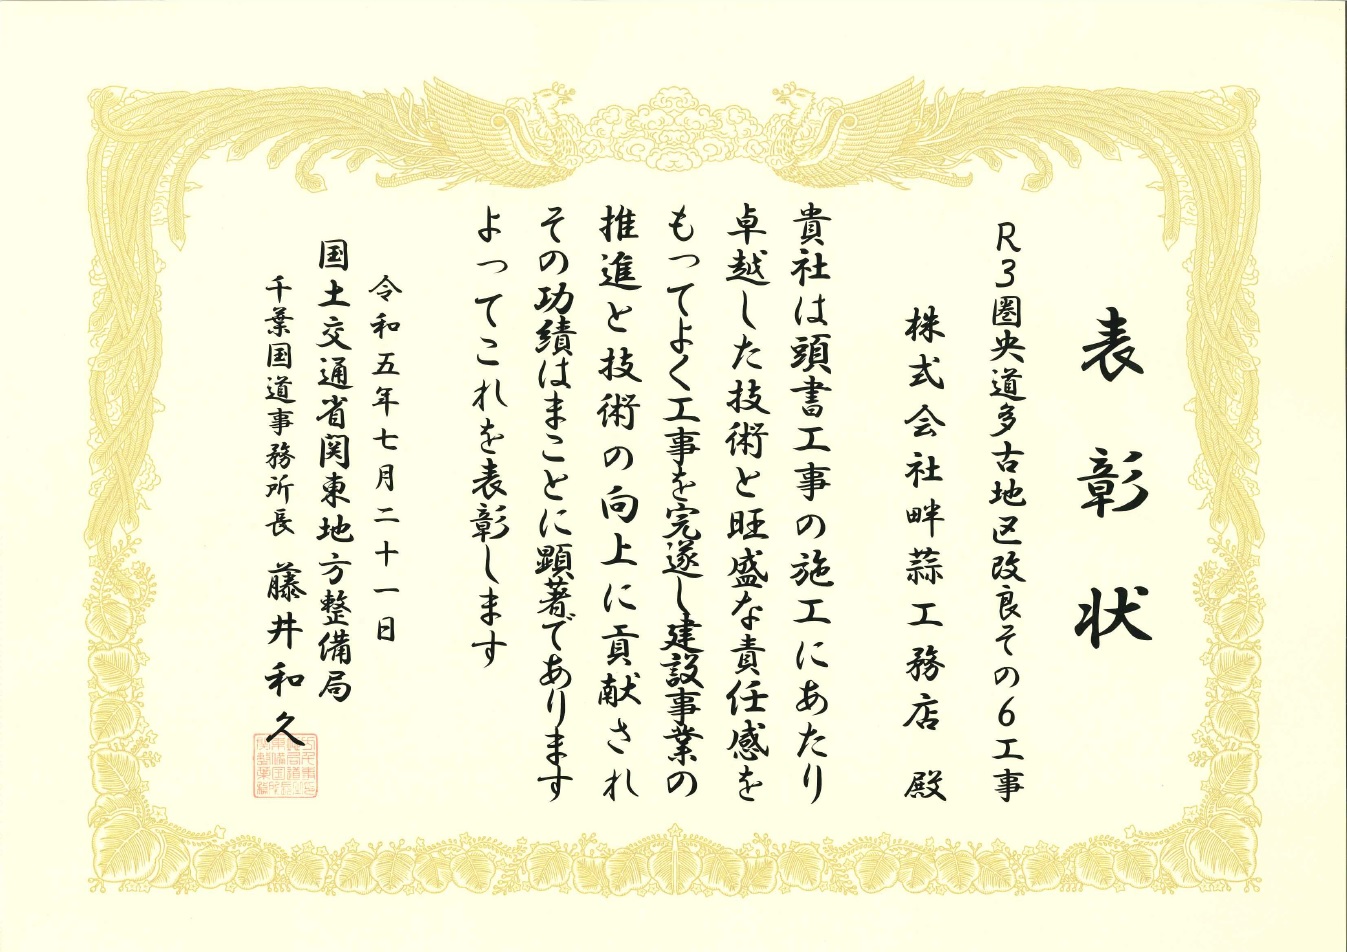 表彰状
R3圏央道多古地区改良その6工事
株式会社畔蒜工務店 殿
貴社は頭書工事の施工にあたり
卓越した技術と旺盛な責任感を
もってよく工事を完遂し建設事業の
推進と技術の向上に貢献され
その功績はまことに顕著であります
よってこれを表彰します
令和五年七月二十一日
国土交通省関東地方整備局
千葉国道事務所長 藤井和久